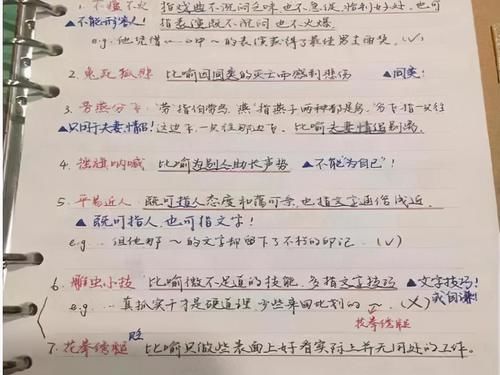 1. 不瘟不火 指戏曲不沉闷乏味也不急促,恰到好处,也可
▲不能形容人! 指表演既不沉闷也不火爆.
e.g. 他凭借……中~的表演获得了最佳男主角奖. (√)
2. 兔死狐悲 比喻因同类的灭亡而感到悲伤 ▲同类!
3. 劳燕分飞 "劳"指伯劳鸟,"燕"指燕子两种都是鸟,分飞指一只往
▲只用于夫妻、情侣! 这边飞一只往那边飞. 比喻夫妻情侣别离.
4. 摇旗呐喊 比喻为别人助长声势 ▲不能"为自己"!
5. 平易近人 既可指人态度和蔼可亲,也指文字通俗浅近.
▲既可指人,也可指文字!
e.g. …但他那~的文字却留下了不朽的印记. (√)
6. 雕虫小技 比喻微不足道的技能,多指文字技巧 ▲文字技巧!
或自谦!
e.g. …真抓实干才是硬道理,少些来回比划的~. (×)
花拳绣腿
7. 花拳绣腿 比喻只做些表面上好看实际上并无用处的工作.